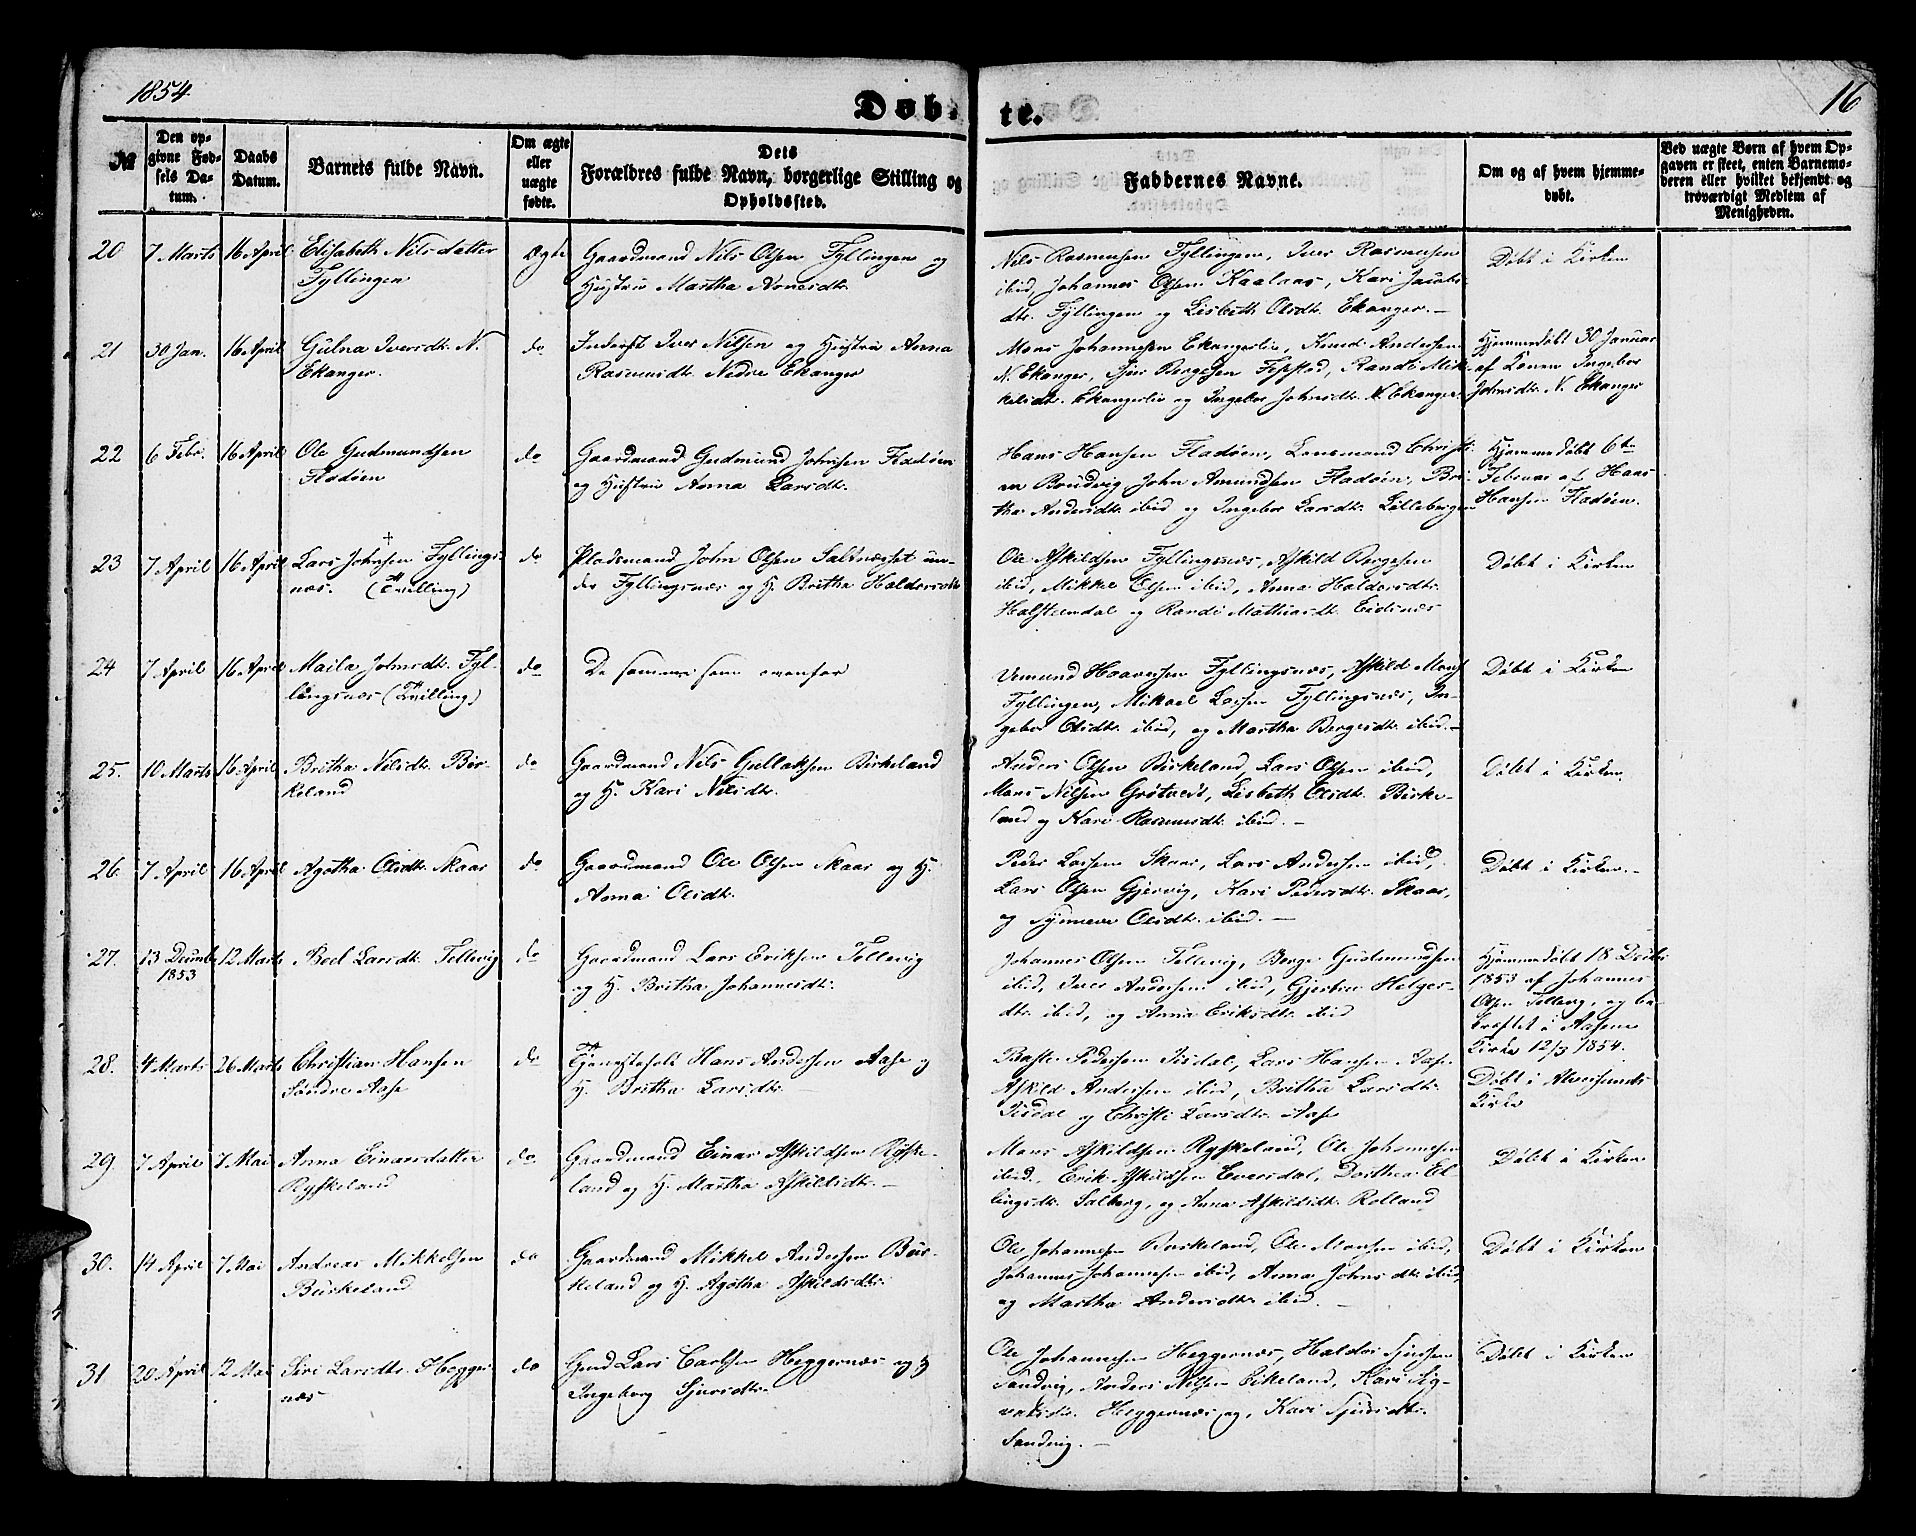 1854
16
Døbte.
№
Den opgivne Fødsels Datum.
Daabs Datum.
Barnets fulde Navn.
Om ægte eller uægte fødte.
Dets Forældres fulde Navn, borgerlige Stilling og Opholdssted.
Faddernes Navne.
Om og af hvem hjemmedøbt.
Ved uægte Børn af hvem Opgaven er skeet, enten Barnemoderen eller hvilket bekjendt og troværdigt Medlem af Menigheden.
20
7 Marts
16 April
Elisabeth Nilsdatter
Fyllingen
Ægte
Gaardmand Nils Olsen Fyllingen og
Hustrue Martha
Nils Rasmusen Fyllingen, Iver Rasmusen
ibid, Johannes Olsen Kaalaas, Kari Jacobs
dtr. Fyllingen og Lisbeth Olsdtr. Ekanger.-
Døbt i Kirken
21
30 Jan.
16 April
Gulna Iversdtr. N.
Ekanger.
do
Inderst Iver Nilsen og Hustrue Anna
Rasmusdtr. Nedre Ekanger
Mons Johannesen Ekangerlie, Knud Andersen
N. Ekanger, Siur Bergesen Feste, Randi Mik-
kelsdtr. Ekangerlie og Ingebor Johnsdtr. N. Ekanger.
Hjemmedøbt 30 Januar
af Konen Ingebor
Johnsdtr. N. Ekanger
22
6 Febr.
16 April
Ole Gudmundsen
Fladøen
do
Gaardmand Gudmund Johnsen Fladøen
og Hustrue Anna Larsdtr.
Hans Hansen Fladøen, Lensmand Christi
an Bondevig John Amundsen Fladøen, Bri-
tha Andersdtr. ibid og Ingebor Larsdtr. Lillebergen
Hjemmedøbt 6te
Februar af Hans
Hansen Fladøen.
23
7 April
16 April
Lars Johnsen Fyllings-
næs. (Tvilling)
†
do
Pladsmand John Olsen Saltnæset un-
der Fyllingsnæs og H. Britha Haldorsdtr
Ole Askildsen Fyllingsnæs, Askild Bergesen
ibid, Mikkel Olsen ibid, Anna Haldorsdtr.
Holsteendal og Randi Mathiasdtr. Eidsnæs
Døbt i Kirken
24
7 April
16 April
Maila Johnsdtr. Fyl-
lingsnæs (Tvilling)
do
De samme som ovenfor
Vemund Haaversen Fyllingsnæs, Askild Mons
Fyllingen, Mikael Larsen Fyllingsnæs, In-
gebor Olsdtr. ibid, og Martha Bergesdtr. ibid.-
Døbt i Kirken
25.
10 Marts
16 April
Britha Nilsdtr. Bir-
keland
do
Gaardmand Nils Gullaksen Birkeland
og H. Kari Nilsdtr.
Anders Olsen Birkeland, Lars Olsen ibid,
Mons Nilsen Grøtvedt, Lisbeth Olsdtr. Birke-
land og Kari Rasmusdtr. ibid.-
Døbt i Kirken
26.
7 April
16 April
Agotha Olsdtr. Skaar
do
Gaardmand Ole Olsen Skaar og H.
Anna Olsdtr.
Peder Larsen Skaar, Lars Andersen ibid,
Lars Olsen Gjervig, Kari Pedersdtr. Skaar,
og Synneve Olsdtr. ibid.-
Døbt i Kirken.-
27.
13 Decmbr
1853
12 Marts
Boel Larsdtr. Tellevig
do
Gaardmand Lars Eriksen Tellevig
og H. Britha Johannesdtr.
Johannes Olsen Tellevig, Berge Gudmundsen
ibid, Iver Andersen ibid, Gjertrue Helges-
dtr. ibid, og Anna Eriksdtr. ibid
Hjemmedøbt 18 Decbr
1853 af Johannes
Olsen Tellevig, og be-
kræftet i Aasene
Kirke 12/3 1854.
28.
4 Marts
26 Marts
Christian Hansen
Søndre Aase
do
Tjenestefolk Hans Andersen Aase og
H. Britha Larsdtr.
Peder Pedersen Isdal, Lars Hansen Aase
Askild Andersen ibid, Britha Larsdtr.
Isdal og Christi Larsdtr. Aase
Døbt i Alversunds
Kirke
29.
7 April
7 Mai
Anna Einarsdatter
Ryskeland
do
Gaardmand Einar Askildsen Ryske-
land og H. Martha Askildsdtr.-
Mons Askildsen Ryskeland, Ole Johannesen
ibid, Erik Askildsen Eversdal, Dorthea El-
lingsdtr. Solberg, og Anna Askildsdtr. Rolland
Døbt i Kirken
30.
14 April
7 Mai
Andreas Mikkelsen
Birkeland
do
Gaardmand Mikkel Andersen Bir-
keland og H. Agotha Askildsdtr.
Ole Johannesen Birkeland, Ole Monsen ibid,
Johannes Johannesen ibid, Anna Johnsdtr. ibid,
og Martha Andersdtr. ibid.-
Døbt i Kirken
31
20 April
12 Mai
Siri Larsdtr. Hegger-
næs
do
Gmd Lars Carlsen Heggernæs og H
Ingeborg Sjursdtr.
Ole Johannesen Heggernæs, Haldor Sjursen
Sandvig, Anders Nilsen Eikeland, Kari Sig-
valdsdtr. Heggernæs og, Kari Sjursdtr.
Sandvig.-
Døbt i Kirken